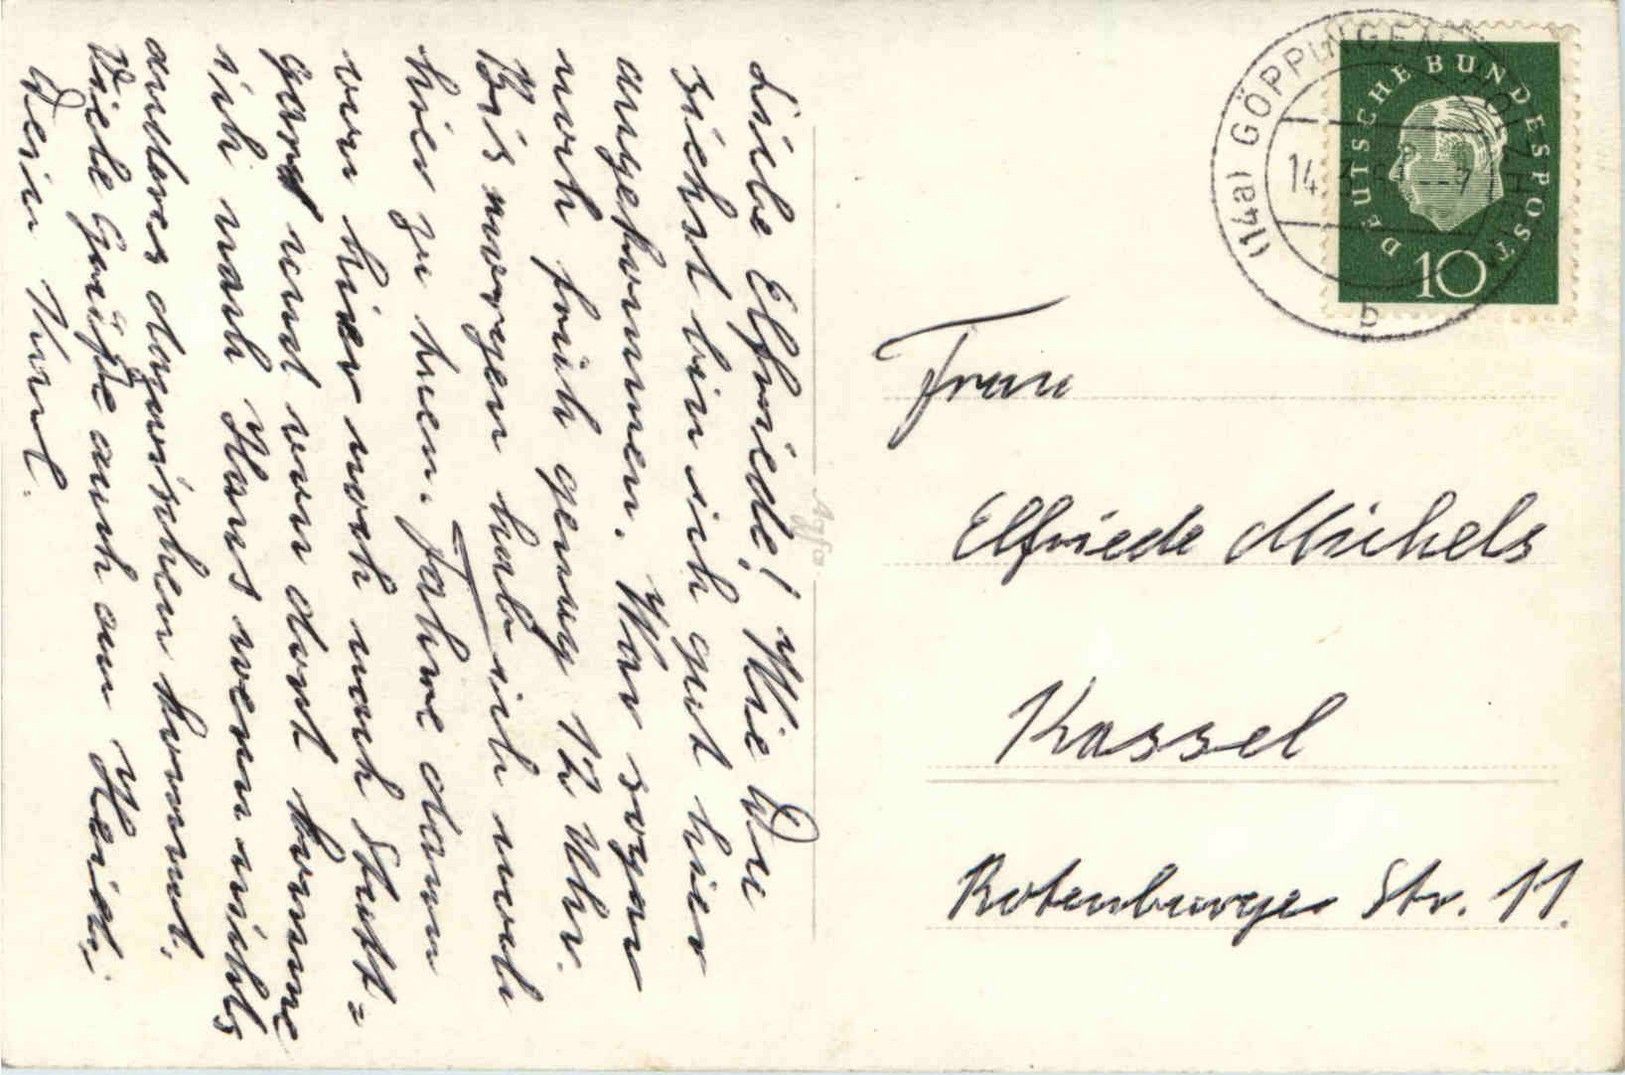 Liebe Elfriede! Wie Du
siehst bin ich gut hier
angekommen. War sogar
noch früh genug 12 Uhr.
Bis morgen hab ich noch
hier zu tuen. Fahre dann
von hier noch nach Stutt=
gard und von dort komme
ich nach Haus wenn nichts
anderes dazwischen kommt.
Viele Grüße auch an Heidi,
Dein Kurt.
Agfa
(14a) GÖPPINGEN
14
-7
b
DEUTSCHE BUNDESPOST
10
Frau
Elfriede Michels
Kassel
Rotenburger Str. 11.